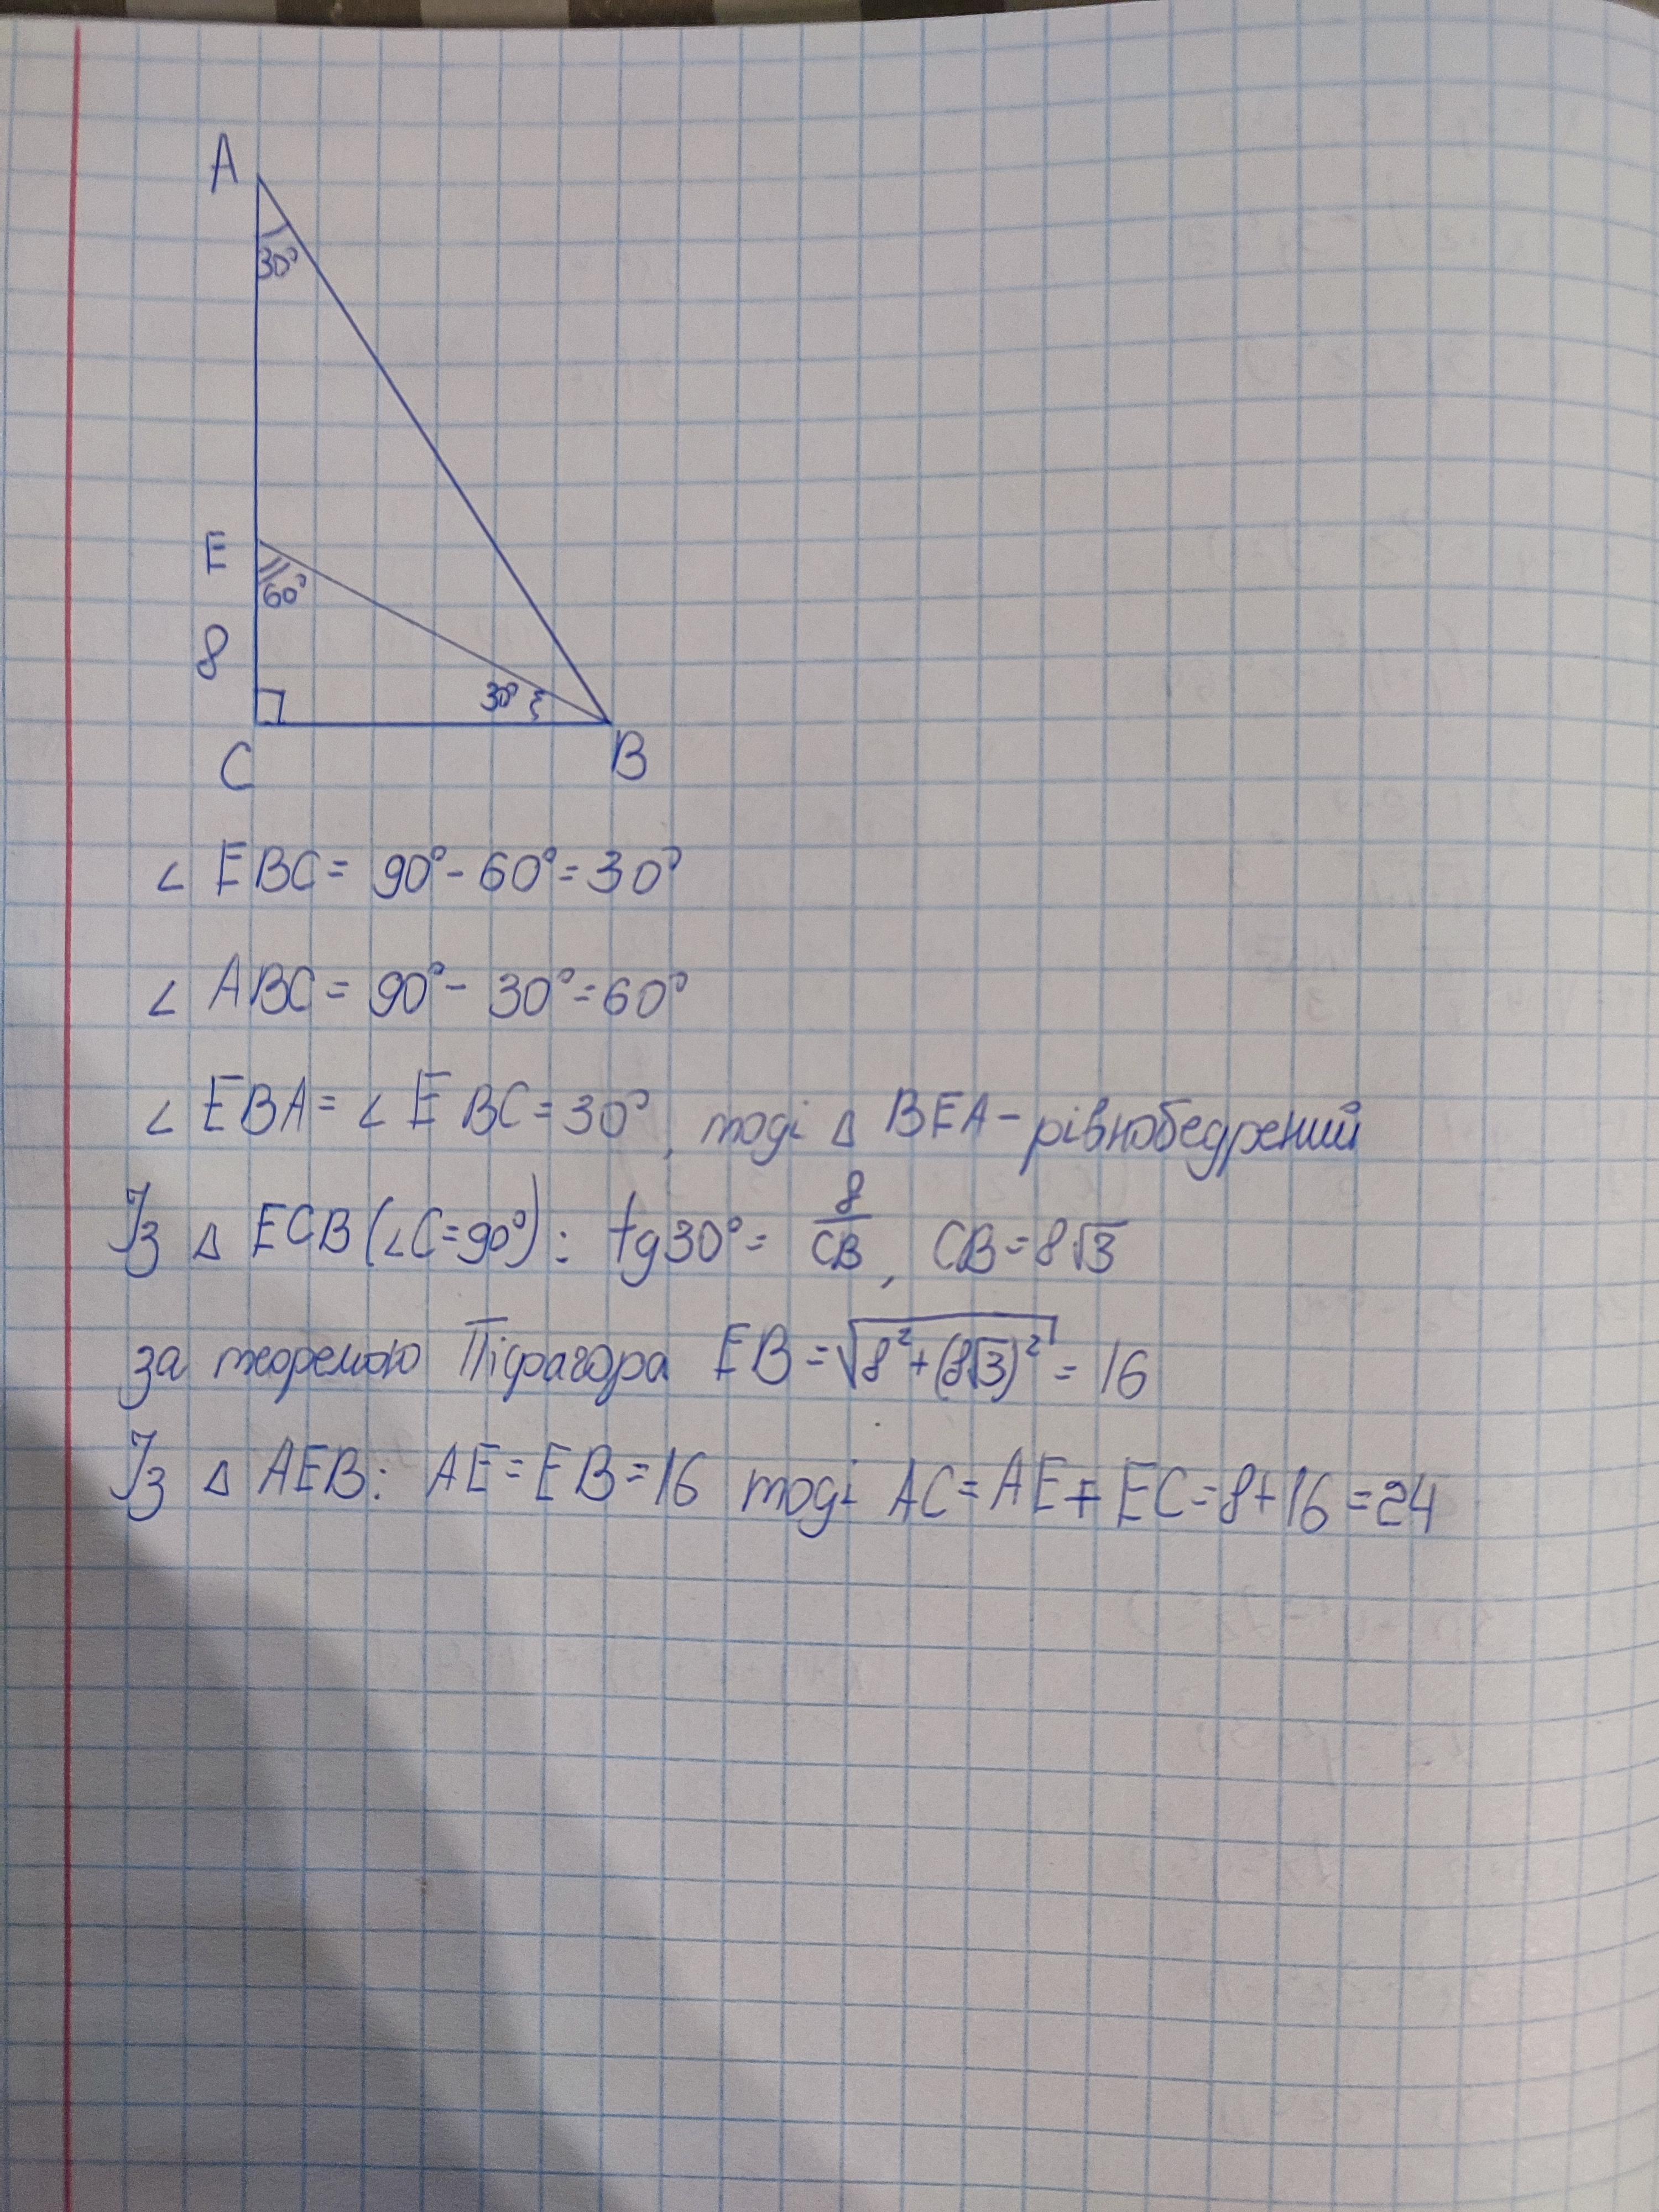 A
30°
E
60°
8
30°
C
B
∠ EBC = 90° - 60° = 30°
∠ ABC = 90° - 30° = 60°
∠ EBA = ∠ EBC = 30°, тоді Δ BEA - рівнобедрений
Із Δ ECB (∠C = 90°): tg30° = 8/CB, CB = 8√3
за теоремою Піфагора EB = √(8² + (8√3)²) = 16
Із Δ AEB: AE = EB = 16 тоді AC = AE + EC = 8 + 16 = 24